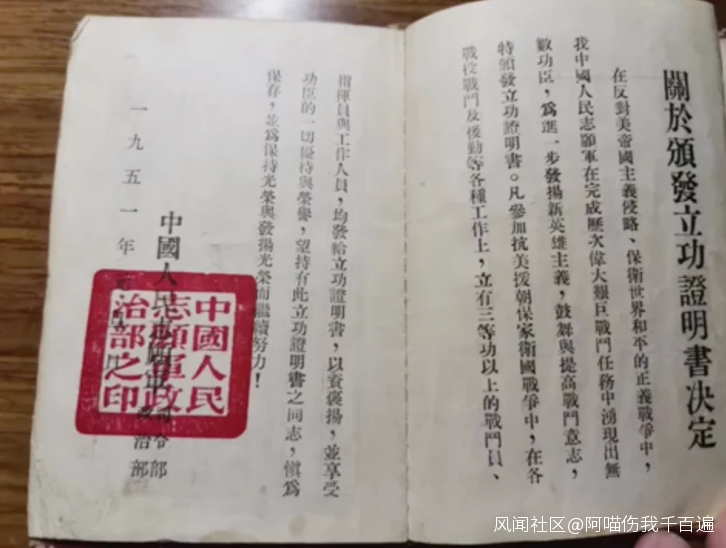 關於頒發立功證明書決定
在反對美帝國主義侵略、保衛世界和平的正義戰爭中,
我中國人民志願軍在完成歷次偉大艱巨戰鬥任務中湧現出無
數功臣,爲進一步發揚新英雄主義,鼓舞與提高戰鬥意志,
特頒發立功證明書。凡參加抗美援朝保家衛國戰爭中,在各
戰役戰鬥及後勤等各種工作上,立有三等功以上的戰鬥員、
指揮員與工作人員,均發給立功證明書,以資褒揚,並享受
功臣的一切優待與榮譽,望持有此立功證明書之同志,慎爲
保存,並爲保持光榮與發揚光榮而繼續努力!
中國人民志願軍司令部
政治部
一九五一年
中國人民
志願軍政
治部之印
风闻社区@阿喵伤我千百遍